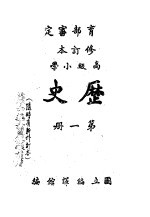 育部審定
修訂本
高級小學
歷史
第一冊
國立編譯館編